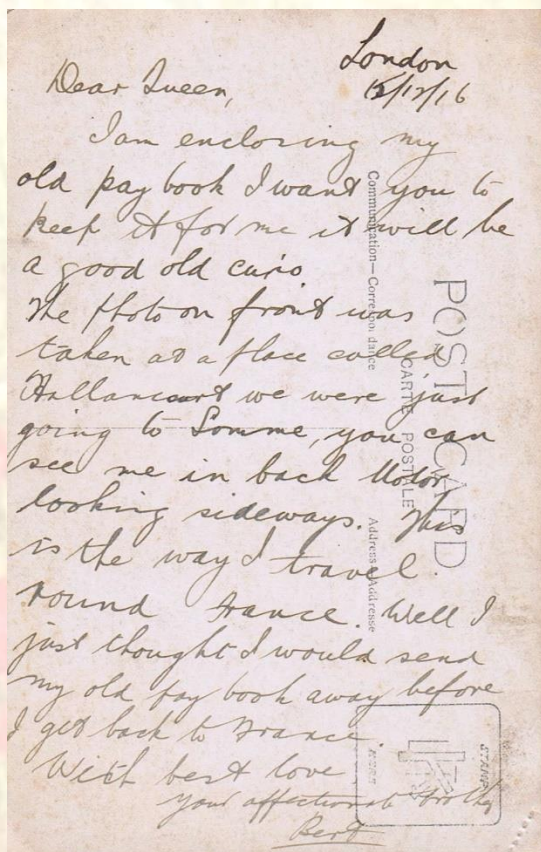 London
12/12/16
Dear Queen,
I am enclosing my
old pay book I want you to
keep it for me it will be
a good old curio
The photo on front was
taken at a place called
Hallancourt we were just
going to Somme, you can
see me in back Motor
looking sideways. This
is the way I travel
round France. Well I
just thought I would send
my old pay book away before
I get back to France.
With best love
your affectionate brother
Bert
POST CARD
CARTE POSTALE
Communication—Correspondance
Address Addresse
STAMP
HERE